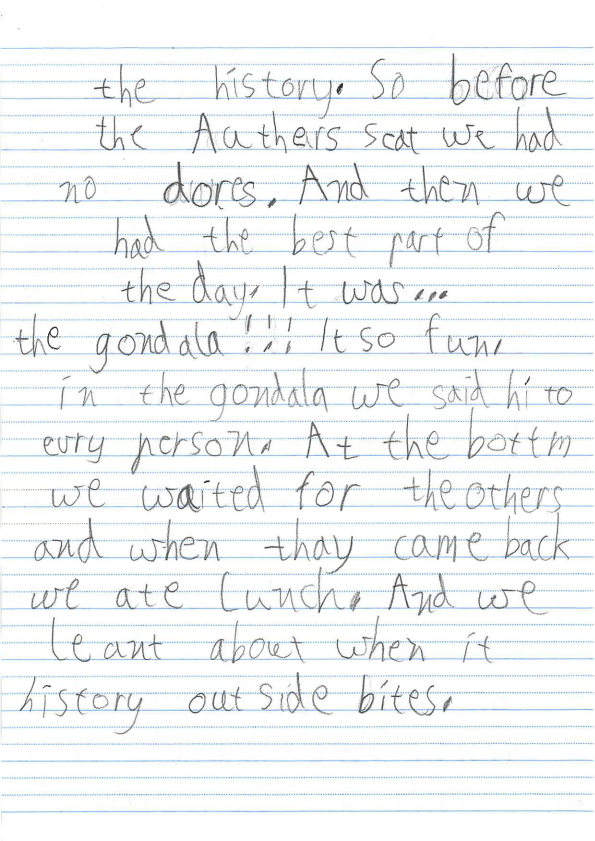 the history. So before
the Authers scat we had
no dores. And then we
had the best part of
the day. It was...
the gondala!!! It so fun.
in the gondala we said hi to
evry person. At the bottm
we waited for the others
and when thay came back
we ate Lunch. And we
leant about when it
history out side bites.